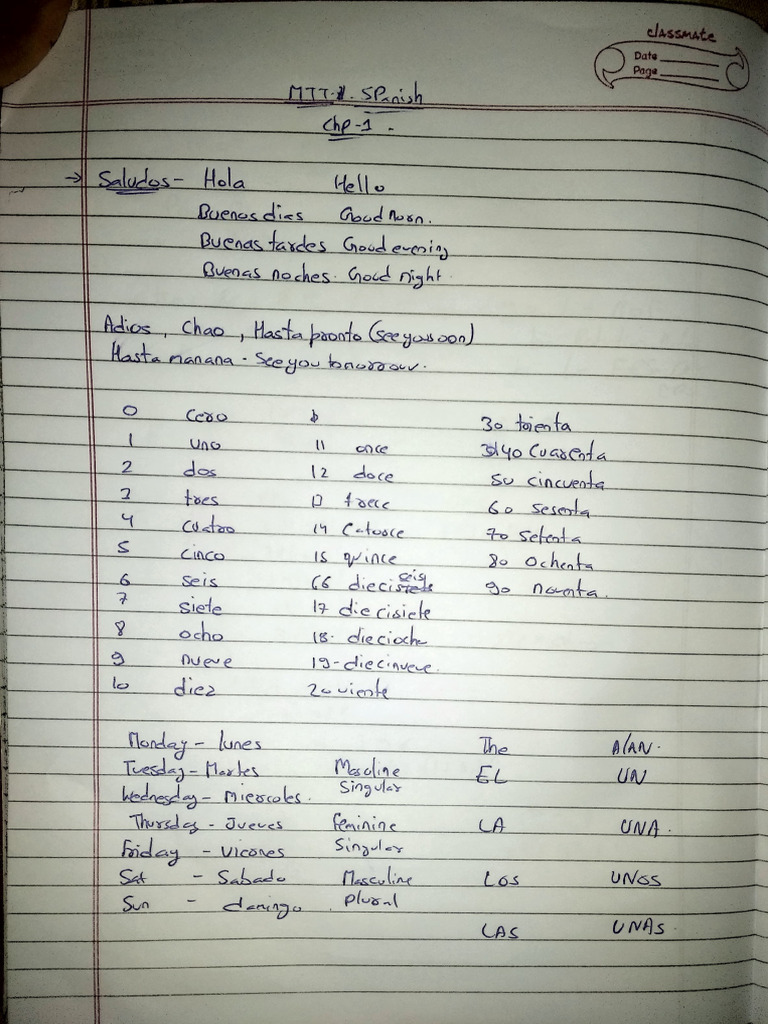 classmate
Date
Page
MTT-1. Spanish
Chp-1.
→ Saludos - Hola Hello
Buenos dias Good morn.
Buenas tardes Good evening
Buenas noches. Good night.
Adios, Chao, Hasta pronto (see you soon)
Hasta manana - See you tomorrow.
0 cero 30 trienta
1 uno 11 once 40 Cuarenta
2 dos 12 doce 50 cincuenta
3 tres 13 trece 60 sesenta
4 cuatro 14 Catorce 70 setenta
5 cinco 15 quince 80 ochenta
6 seis 16 dieciseis 90 noventa.
7 siete 17 diecisiete
8 ocho 18. dieciocho
9 nueve 19-diecinueve.
10 diez 20 viente
Monday - lunes The A/AN.
Tuesday - Martes Masculine EL UN
Wednesday - Miercoles. Singular
Thursday - Jueves feminine LA UNA.
Friday - Viernes Singular
Sat - Sabado Masculine LOS UNOS
Sun - domingo. Plural
LAS UNAS.